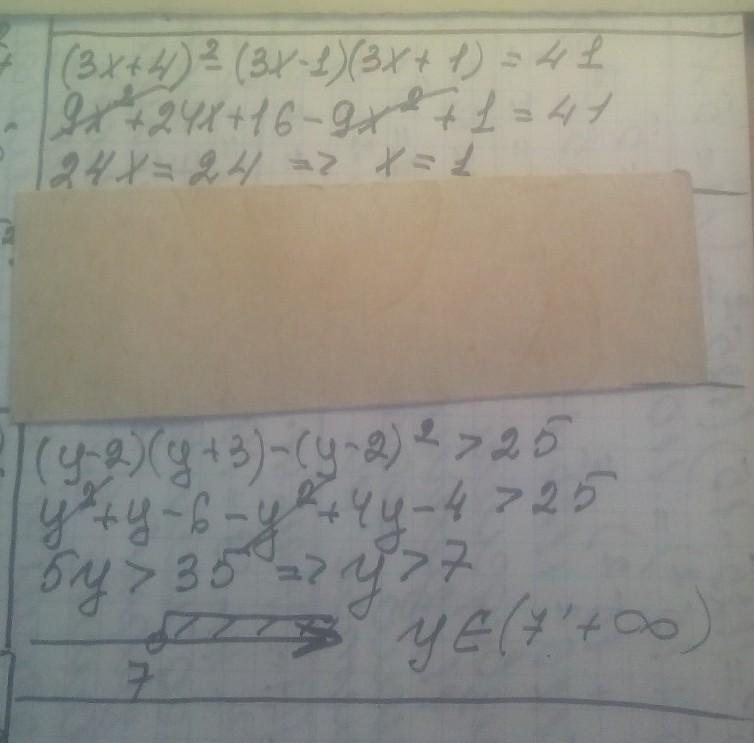 (3x+4)²-(3x-1)(3x+1)=41
9x²+24x+16-9x²+1=41
24x=24 => x=1
(y-2)(y+3)-(y-2)²>25
y²+y-6-y²+4y-4>25
5y>35 => y>7
7
y∈(7'+∞)